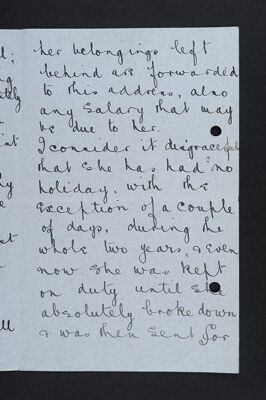 her belongings left
behind are forwarded
to this address, also
any salary that may
be due to her.
I consider it disgraceful
that she has had no
holiday, with the
exception of a couple
of days, during the
whole two years, & even
now she was kept
on duty until she
absolutely broke down
& was then sent for